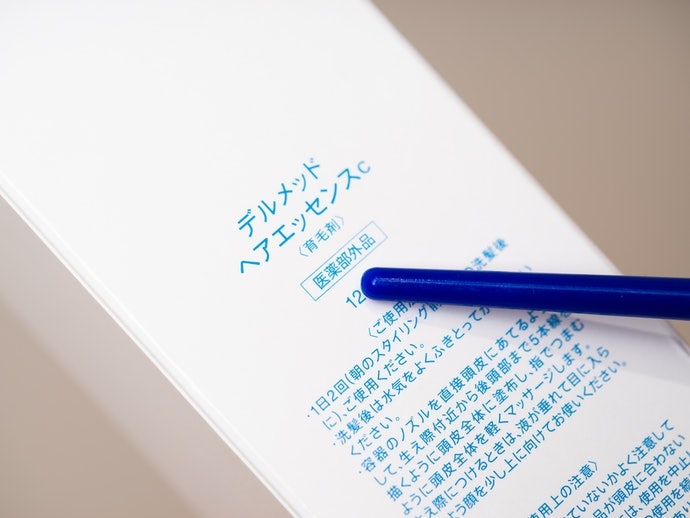 デルメッド
ヘアエッセンスC
〈育毛剤〉
医薬部外品
12
〈ご使用 の洗髪後
・1日2回(朝のスタイリング
に)、ご使用ください。
・洗髪後は水気をよくふきとってか
ください。
・容器のノズルを直接頭皮にあてるよ
して、生え際付近から後頭部まで5本線
描くように頭皮全体に塗布し、指でつまむ
ように頭皮全体を軽くマッサージします。
え際につけるときは、液が垂れて目に入ら
よう顔を少し上に向けてお使いください。
使用上の注意〉
ていないかよく注意して
品が頭皮に合わない
は、使用を中止
の使用を続